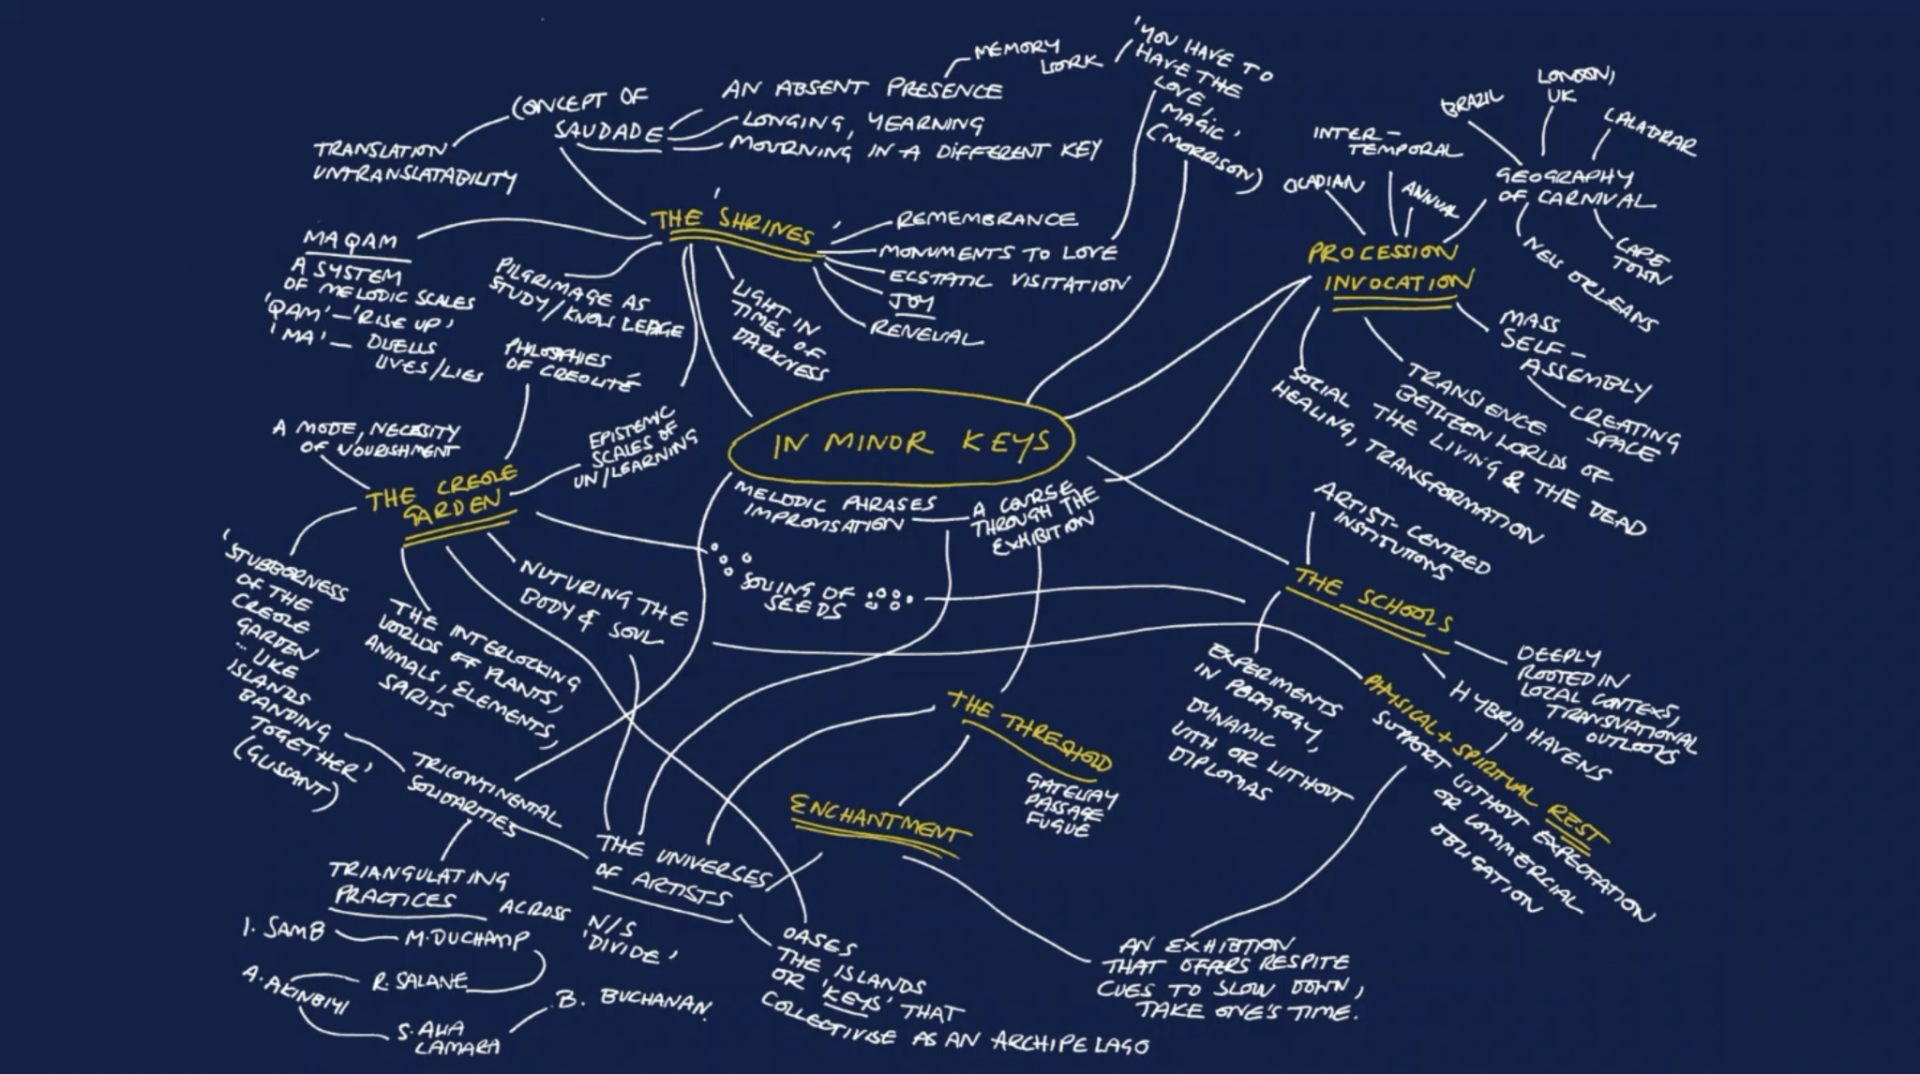 'YOU HAVE TO
HAVE THE
LOVE,
MAGIC'
(MORRISON)
MEMORY
WORK
CONCEPT OF
SAUDADE
AN ABSENT PRESENCE
LONGING, YEARNING
MOURNING IN A DIFFERENT KEY
TRANSLATION
UNTRANSLATABILITY
'THE SHRINES'
REMEMBRANCE
MONUMENTS TO LOVE
ECSTATIC VISITATION
JOY
RENEWAL
MAQAM
A SYSTEM
OF MELODIC SCALES
'QAM' — 'RISE UP'
'MA' — DWELLS
LIVES/LIES
PILGRIMAGE AS
STUDY/KNOWLEDGE
LIGHT IN
TIMES OF
DARKNESS
PHILOSOPHIES
OF CREOLITÉ
A MODE, NECESSITY
OF NOURISHMENT
THE CREOLE
GARDEN
EPISTEMIC
SCALES OF
UN/LEARNING
IN MINOR KEYS
MELODIC PHRASES
IMPROVISATION
A COURSE
THROUGH THE
EXHIBITION
BRAZIL
LONDON,
UK
INTER-
TEMPORAL
OCADIAN
ANNUAL
GEOGRAPHY
OF CARNIVAL
NEW ORLEANS
CAPE
TOWN
PROCESSION
INVOCATION
MASS
SELF-
ASSEMBLY
CREATING
SPACE
TRANSIENCE
BETWEEN WORLDS OF
THE LIVING & THE DEAD
SOCIAL
HEALING, TRANSFORMATION
ARTIST-CENTRED
INSTITUTIONS
THE SCHOOLS
DEEPLY
ROOTED IN
LOCAL CONTEXTS,
TRANSNATIONAL
OUTLOOKS
HYBRID HAVENS
EXPERIMENTS
IN PEDAGOGY,
DYNAMIC,
WITH OR WITHOUT
DIPLOMAS
PHYSICAL + SPIRITUAL REST
SUPPORT WITHOUT EXPECTATION
OR COMMERCIAL
OBLIGATION
SOWING OF
SEEDS
NUTURING THE
BODY & SOUL
'STUBBORNESS
OF THE
CREOLE
GARDEN
... LIKE
ISLANDS
BANDING
TOGETHER'
(GLISSANT)
THE INTERLOCKING
WORLDS OF PLANTS,
ANIMALS, ELEMENTS,
THE THRESHOLD
GATEWAY
PASSAGE
FUGUE
ENCHANTMENT
TRICONTINENTAL
SOLIDARITIES
THE UNIVERSES
OF ARTISTS
TRIANGULATING
PRACTICES
ACROSS N/S
'DIVIDE'
I. SAMB
M. DUCHAMP
R. SALANE
A. AKINBIYI
B. BUCHANAN
OASES
THE ISLANDS
OR 'KEYS' THAT
COLLECTIVISE AS AN ARCHIPELAGO
AN EXHIBITION
THAT OFFERS RESPITE
CUES TO SLOW DOWN,
TAKE ONE'S TIME.